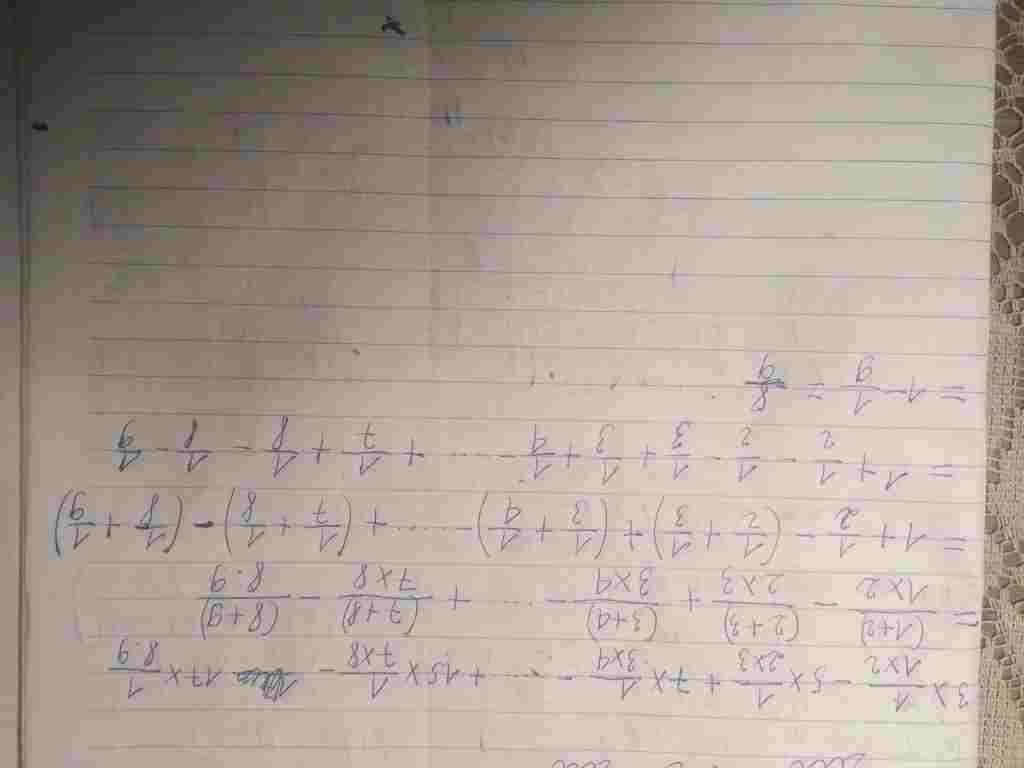 3 x 1/1x2 - 5 x 1/2x3 + 7 x 1/3x4 - ..... + 15 x 1/7x8 - 17 x 1/8.9
= (1+2)/1x2 - (2+3)/2x3 + (3+4)/3x4 - ..... + (7+8)/7x8 - (8+9)/8.9
= 1 + 1/2 - (1/2 + 1/3) + (1/3 + 1/4) ..... + (1/7 + 1/8) - (1/8 + 1/9)
= 1 + 1/2 - 1/2 - 1/3 + 1/3 + 1/4 - ..... + 1/7 + 1/8 - 1/8 - 1/9
= 1 - 1/9 = 8/9